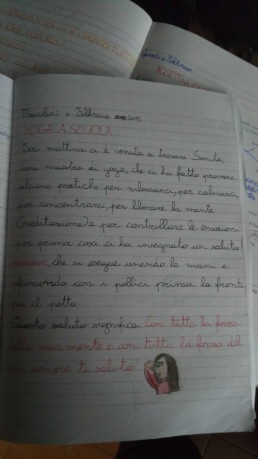 Giovedì 2 Febbraio
Martedì 7 Febbraio
YOGA A SCUOLA
Ieri mattina ci è venuta a trovare
una maestra di yoga, che ci ha fatto provare
alcune pratiche per rilassarci, per calmarci,
per concentrarci, per liberare la mente
(meditazione) e per controllare le emozioni
per prima cosa ci ha insegnato un saluto
che si esegue unendo le mani e
sfiorando con i pollici prima la fronte
poi il petto.
Questo saluto significa: Con tutta la forza
della mia mente e con tutta la forza del
mio amore ti saluto!